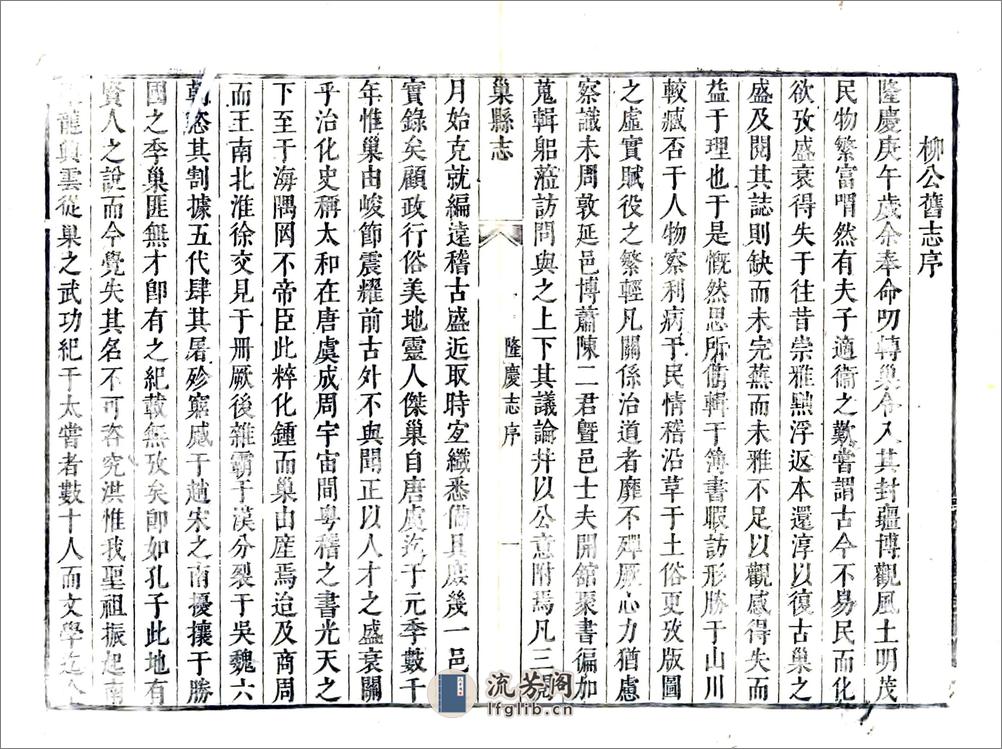 柳公舊志序
隆慶庚午歲余奉命叨轉巢令入其封疆博觀風土明茂
民物繁富喟然有夫子適衞之歎嘗謂古今不易民而化
欲攷盛衰得失于往昔崇雅黜浮返本還淳以復古巢之
盛及閱其誌則缺而未完蕪而未雅不足以觀感得失而
益于理也于是慨然思所衷輯于簿書暇訪形勝于山川
較臧否于人物察利病于民情稽沿革于土俗更攷版圖
之虛實賦役之繁輕凡關係治道者靡不殫厥心力猶慮
察識未周敦延邑博蕭陳二君曁邑士夫開舘聚書徧加
蒐輯躬蒞訪問與之上下其議論幷以公意附焉凡三閱
巢縣志
隆慶志序
一
月始克就編遠稽古盛近取時宜纖悉備具庶幾一邑
實錄矣顧政行俗美地靈人傑巢自唐虞迄于元季數千
年惟巢由峻節震耀前古外不與聞正以人才之盛衰關
乎治化史稱太和在唐虞成周宇宙間粤稽之書光天之
下至于海隅罔不帝臣此粹化鍾而巢由産焉迨及商周
而王南北淮徐交見于冊厥後雜霸于漢分裂于吳魏六
朝恣其割據五代肆其暑殄窮慼于趙宋之南擾攘于勝
國之季巢匪無才卽有之紀載無攷矣卽如孔子此地有
賢人之說而今覺失其名不可咨究洪惟我聖祖振起南
龍興雲從巢之武功紀于太嘗者數十人而文學